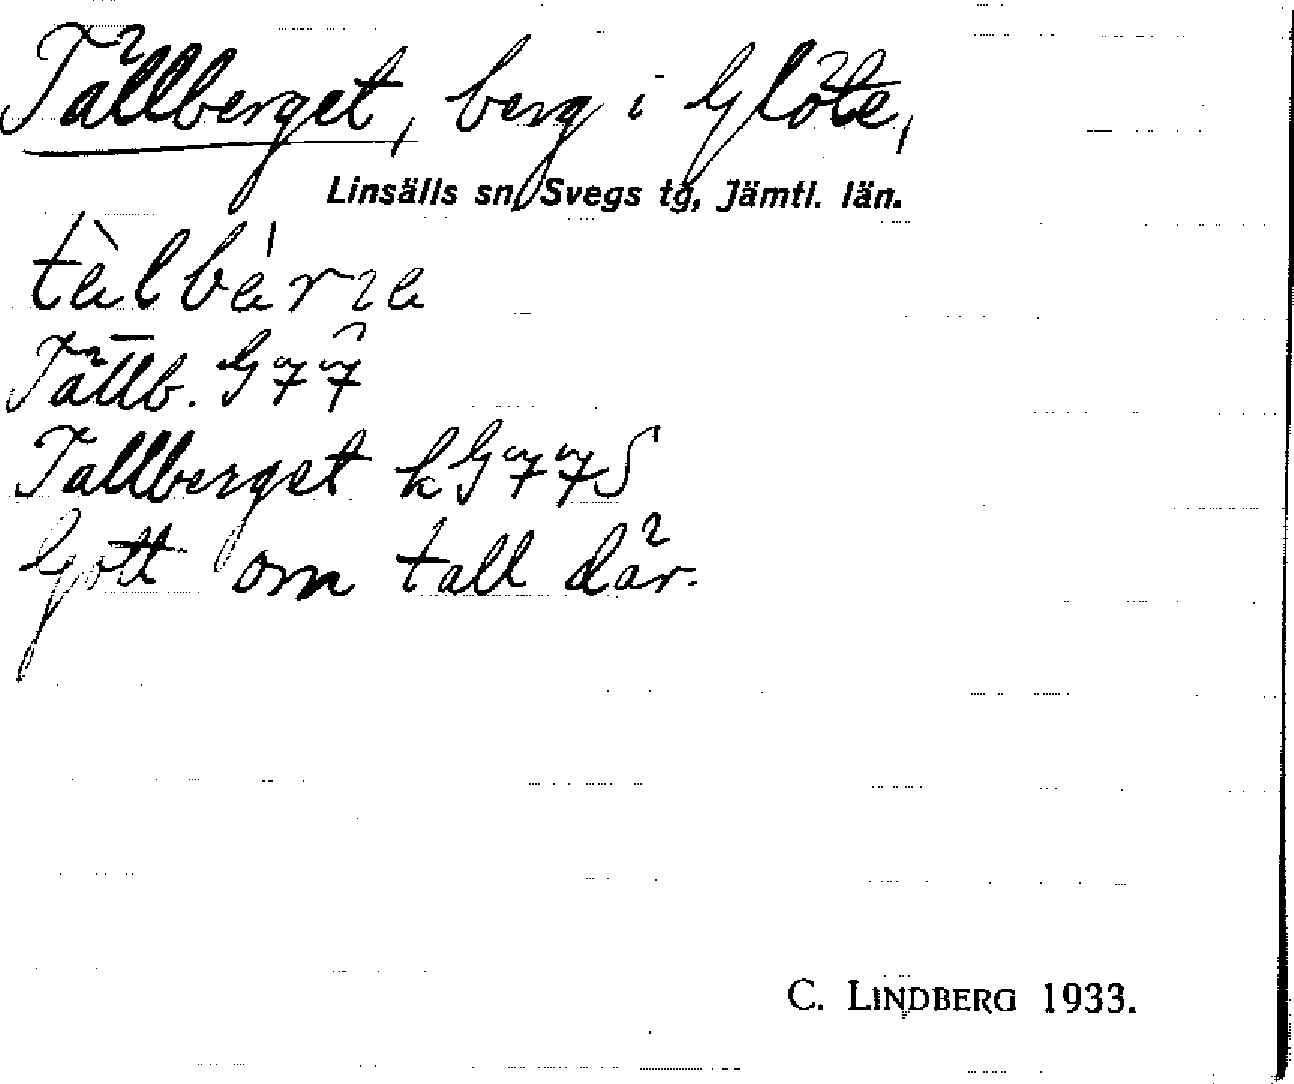 Tällberget, berg i Glöte,
Linsälls sn, Svegs tg, Jämtl. län.
Tällb. G 77
Tallberget k G 77 S
Gott om tall där.
C. LINDBERG 1933.